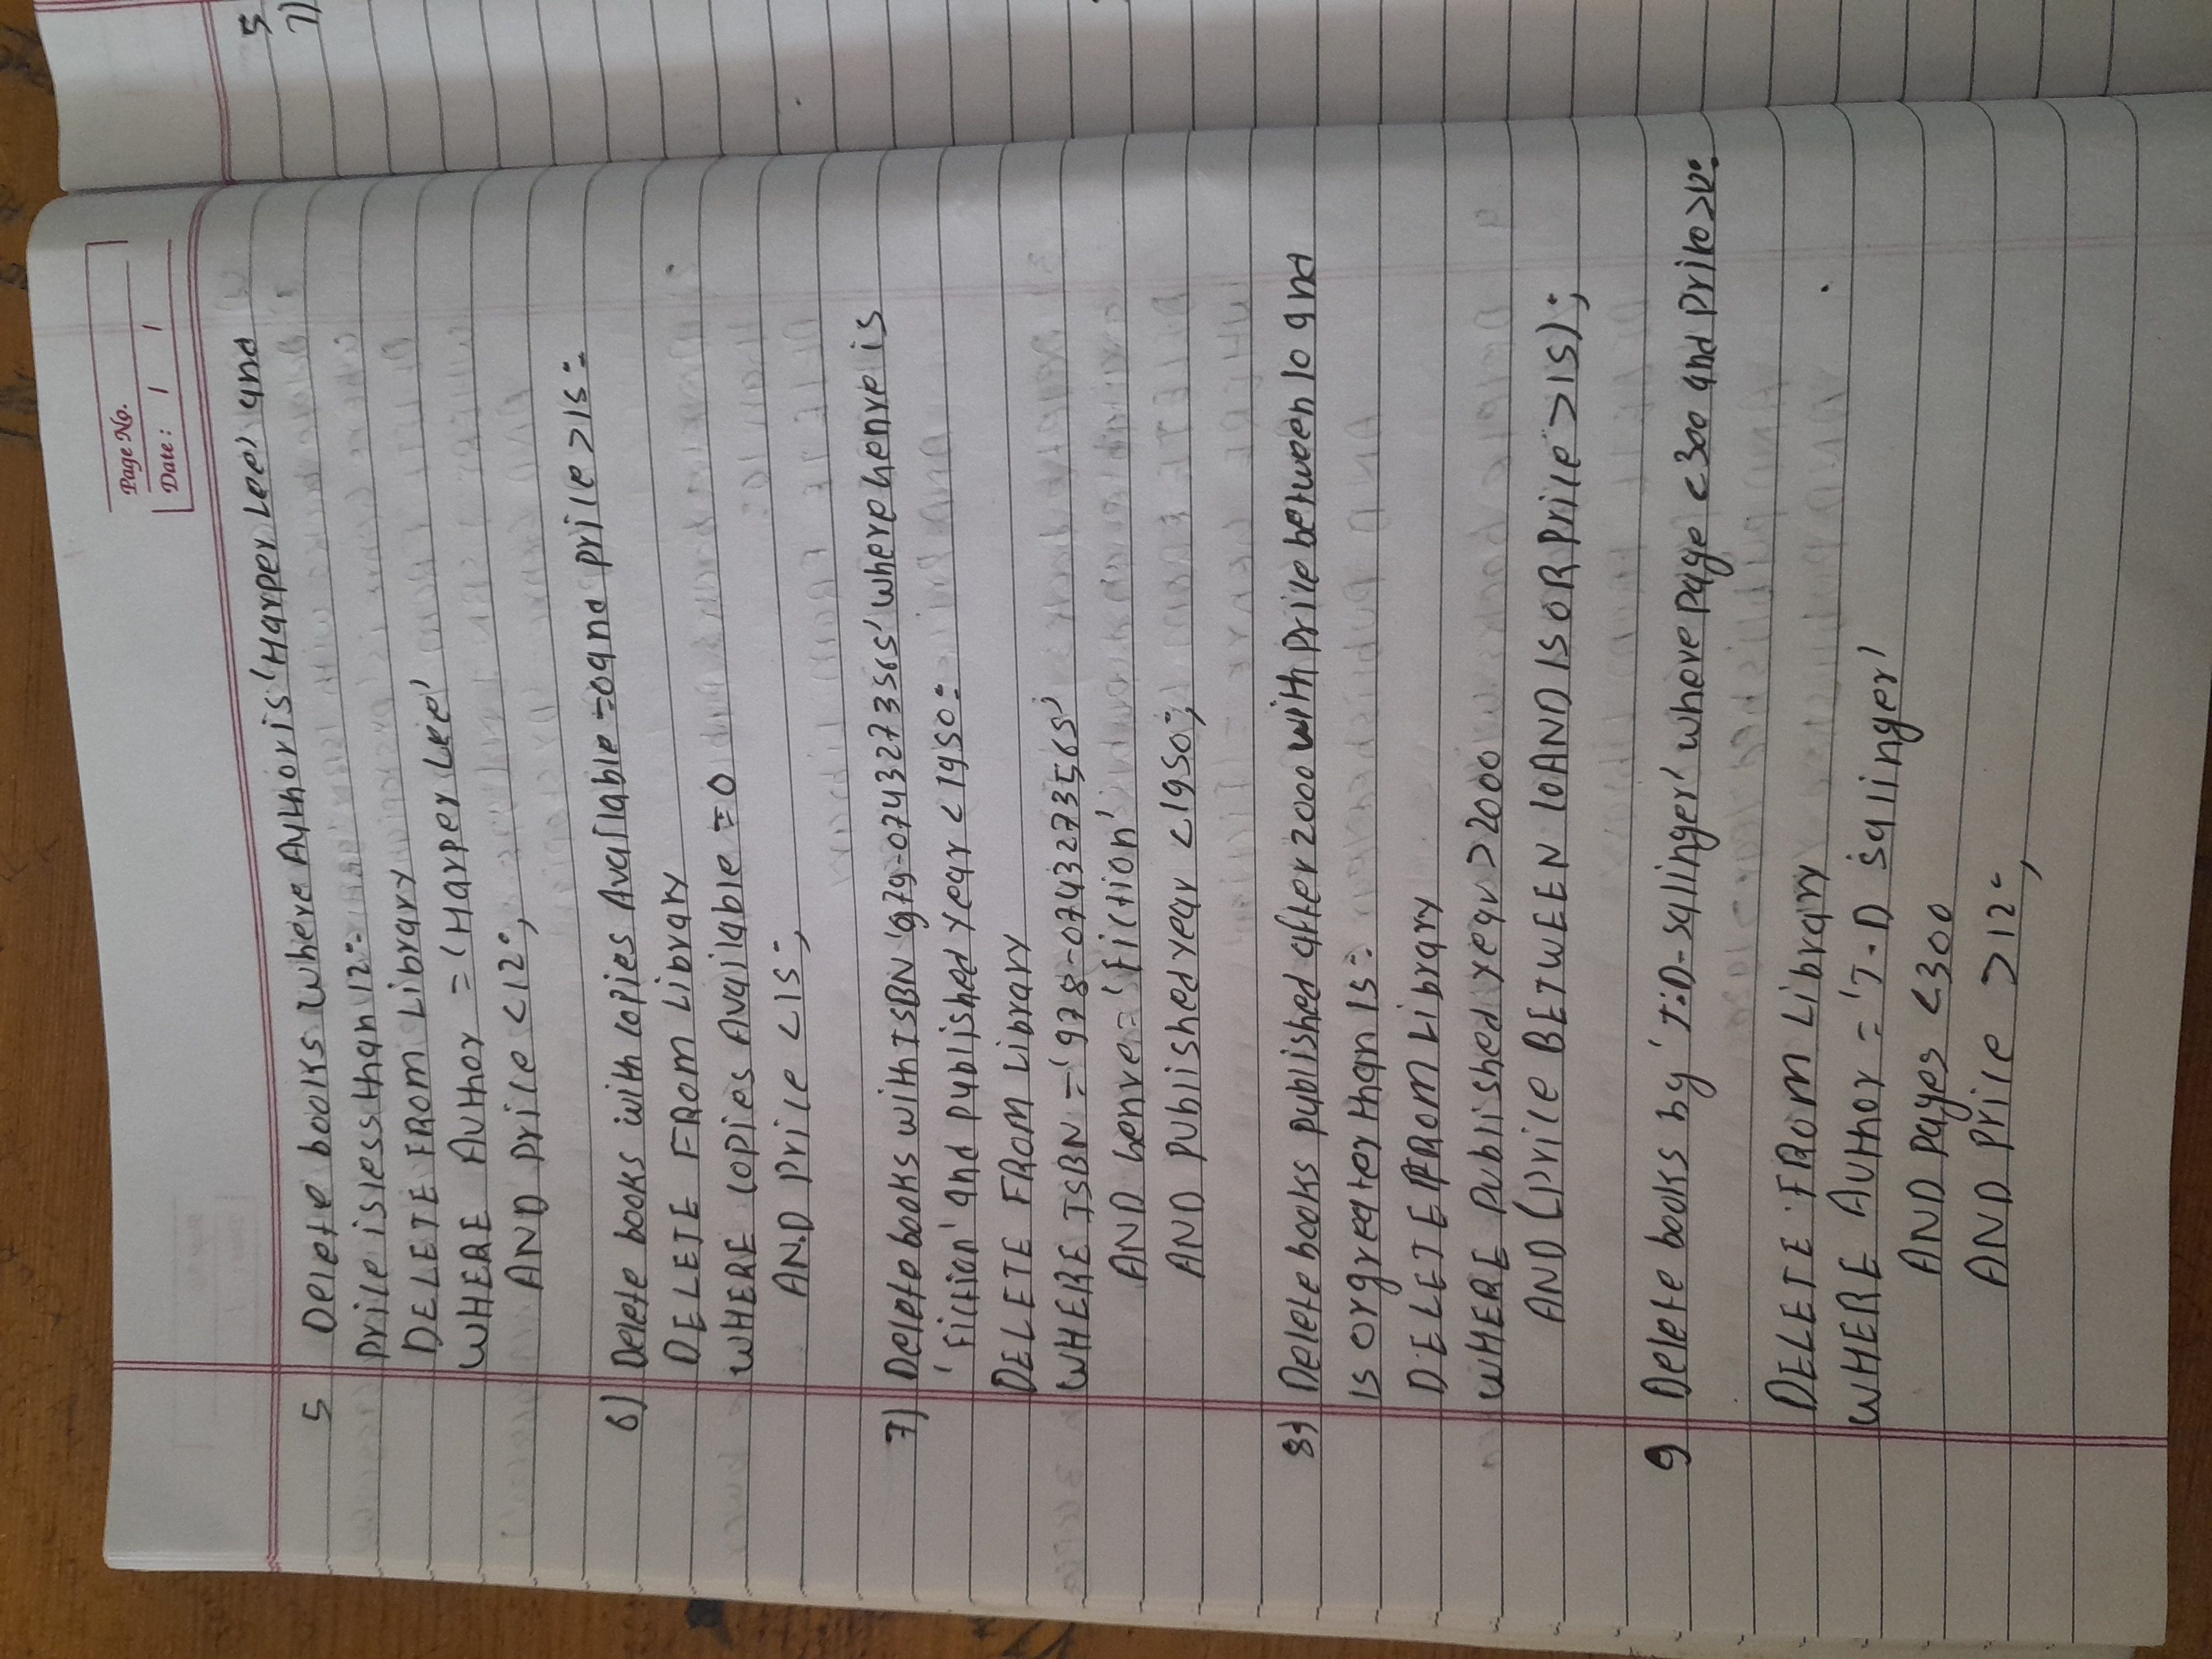 Page No.
Date : / /
5 Delete books where Author is 'Harper Lee' and
Price is less than 12:
DELETE FROM Library
WHERE Author = 'Harper Lee'
AND Price <12;
6) Delete books with copies Available =0 and price >15:
DELETE FROM Library
WHERE copies Available =0
AND Price <15;
7) Delete books with ISBN '979-0743273565' where Genre is
'Fiction' and published year <1950:
DELETE FROM Library
WHERE ISBN ='978-0743273565'
AND Genre = 'Fiction'
AND Published year <1950;
8) Delete books published after 2000 with price between 10 and
15 or greater than 15:
DELETE FROM Library
WHERE Published year >2000
AND (Price BETWEEN 10 AND 15 OR Price >15);
9 Delete books by 'J.D-Salinger' where page <300 and Price >12:
DELETE FROM Library
WHERE Author = 'J.D Salinger'
AND pages <300
AND Price >12;
5
7)